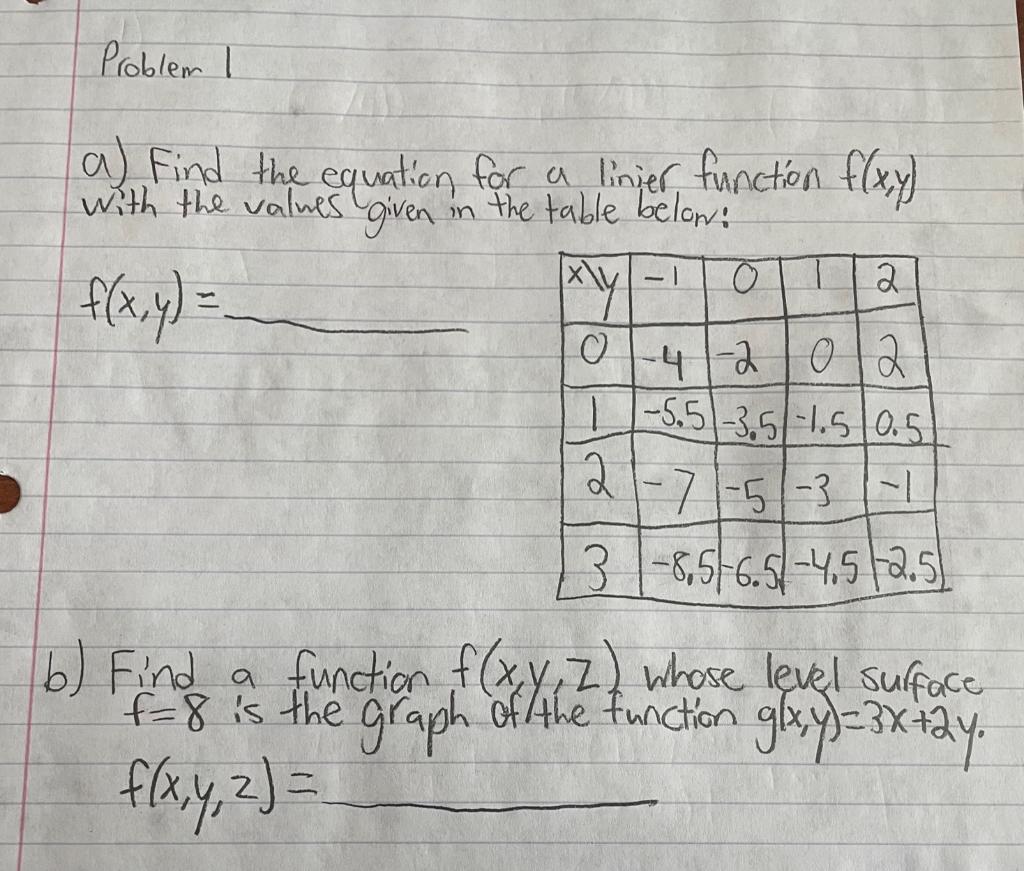 Problem 1
a) Find the equation for a linier function f(x,y)
with the values given in the table below:
f(x,y) =
x\y -1 0 1 2
0 -4 -2 0 2
1 -5.5 -3.5 -1.5 0.5
2 -7 -5 -3 -1
3 -8.5 -6.5 -4.5 -2.5
b) Find a function f(x,y,z) whose level surface
f=8 is the graph of the function g(x,y)=3x+2y.
f(x,y,z) =